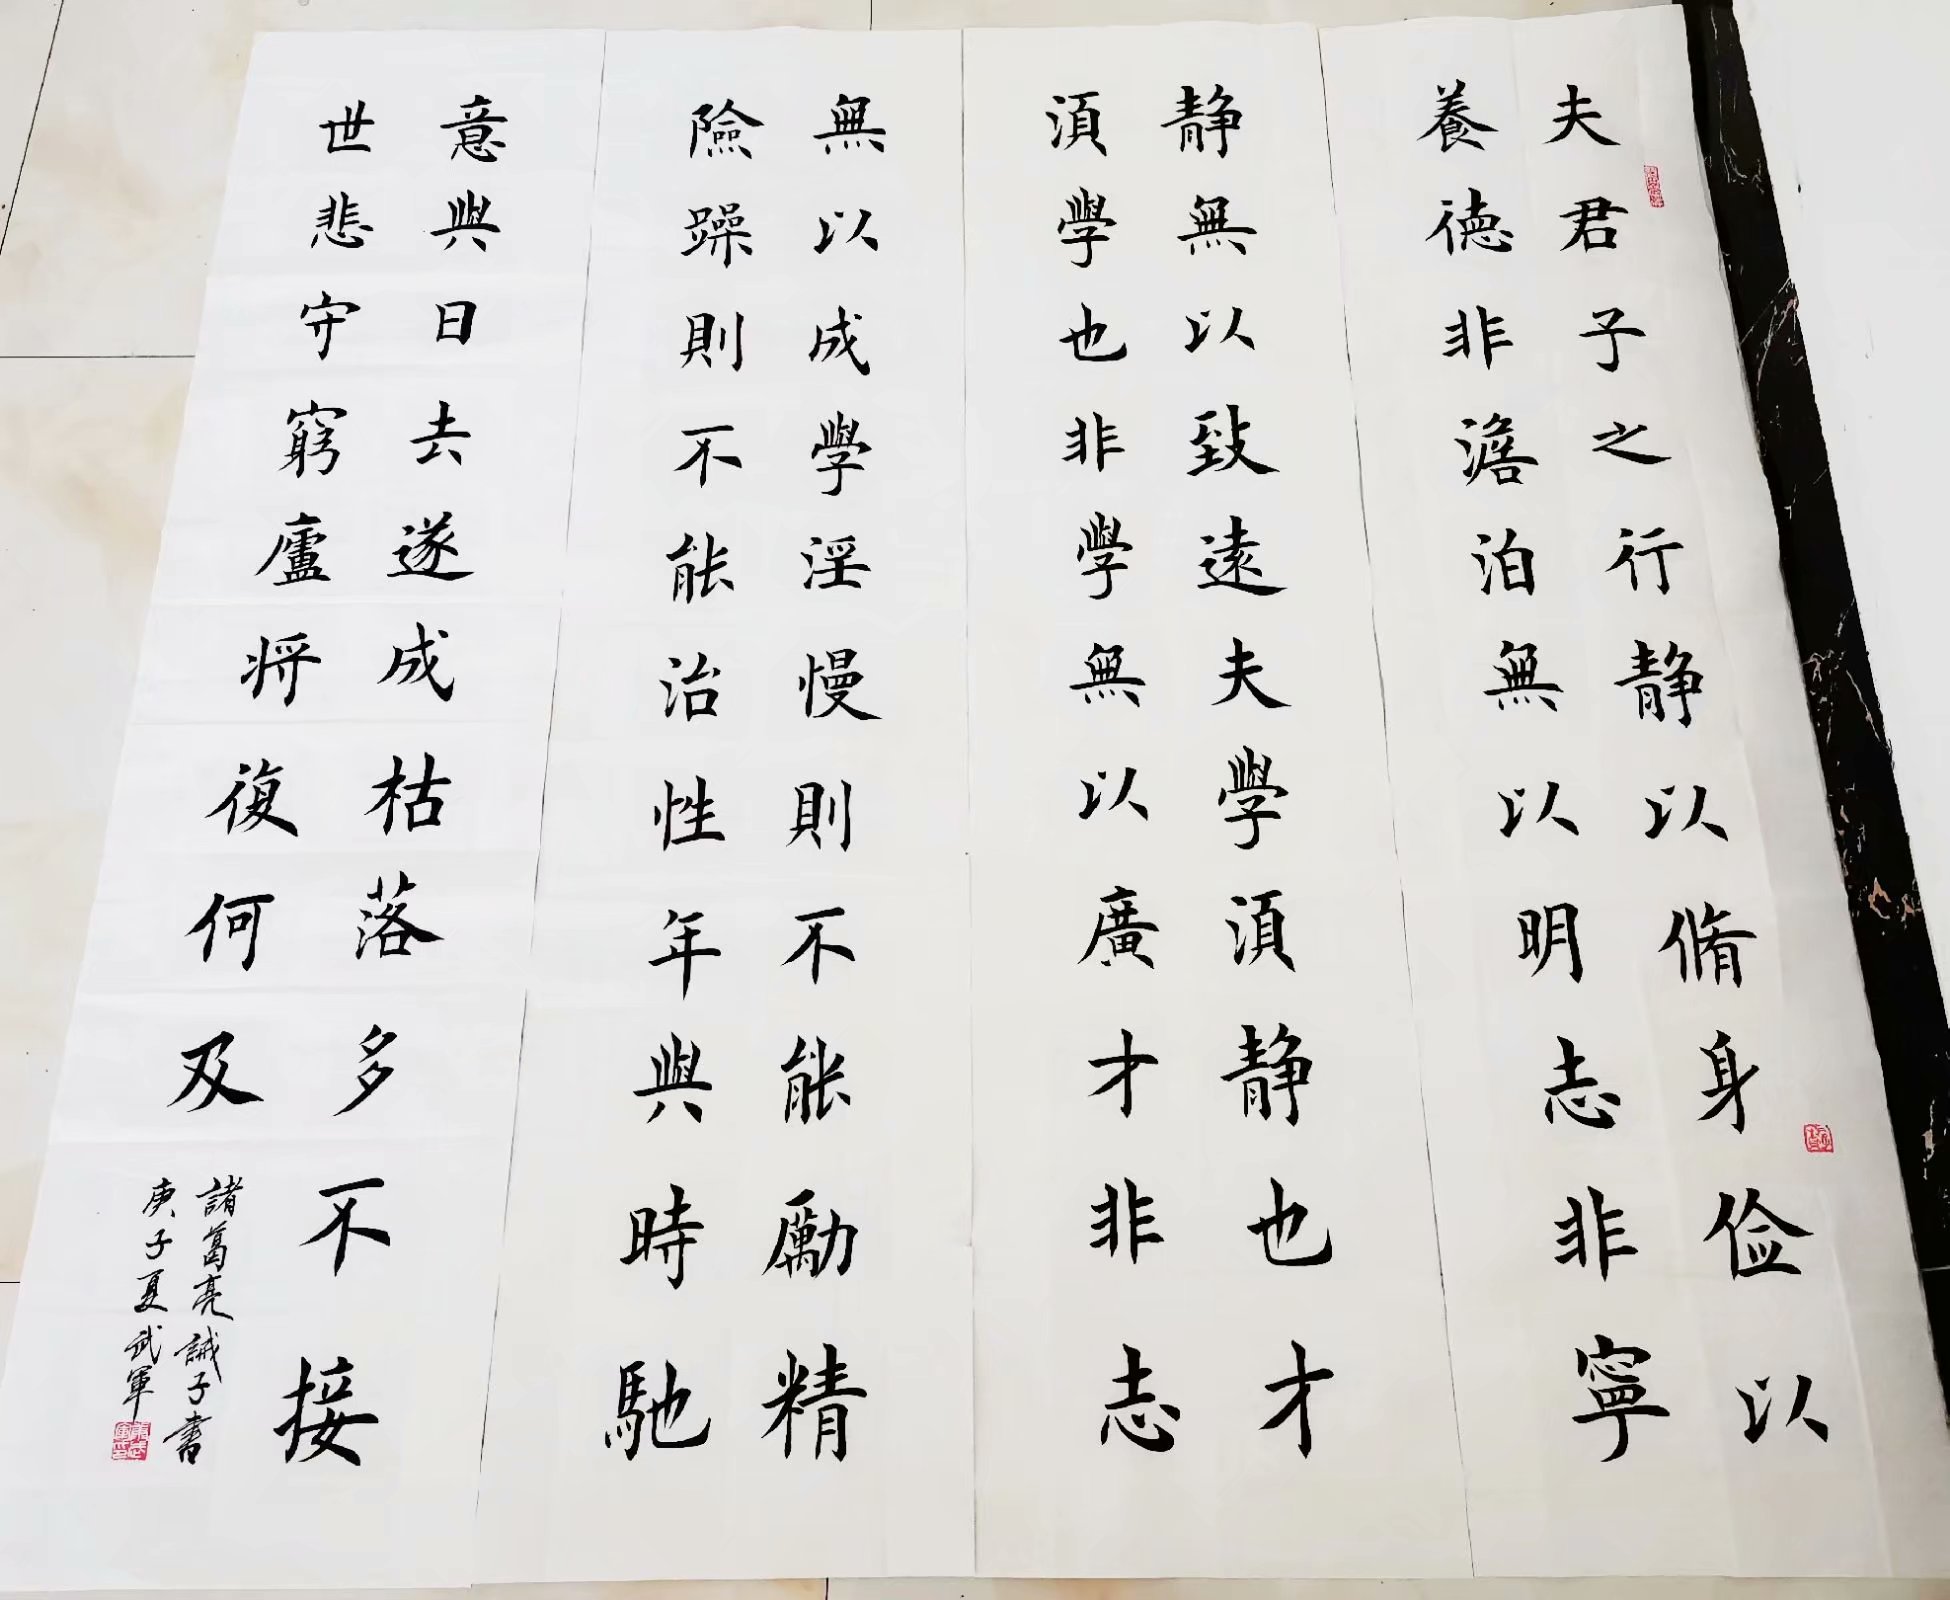 夫君子之行静以脩身俭以
養德非澹泊無以明志非寧
静無以致遠夫學湏静也才
湏學也非學無以廣才非志
無以成學淫慢則不能勵精
險躁則不能治性年與時馳
意與日去遂成枯落多不接
世悲守窮廬将復何及
諸葛亮誡子書
庚子夏武軍